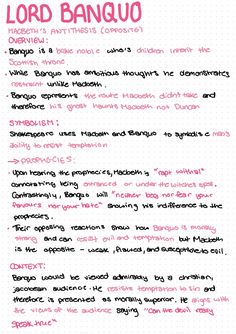 LORD BANQUO
MACBETH'S ANTITHESIS (OPPOSITE)
OVERVIEW:
• Banquo is a noble who's children inherit the
Scottish throne.
• While Banquo has ambitious thoughts he demonstrates
restraint unlike Macbeth.
• Banquo represents the route Macbeth didn't take and
therefore his ghost haunts Macbeth not Duncan
SYMBOLISM:
Shakespeare uses Macbeth and Banquo to symbolise man's
ability to resist temptation
→ PROPHECIES:
• Upon hearing the prophecies, Macbeth is "rapt withal"
connotating being entranced or under the witches spell.
Contrastingly, Banquo will "neither beg nor fear your
favours nor your hate" showing his indifference to the
prophecies.
• Their opposing reactions show how Banquo is morally
strong and can resist evil and temptation but Macbeth
is the opposite - weak, flawed, and susceptible to evil.
CONTEXT:
Banquo would be viewed admirably by a christian,
jacobean audience. He resists temptation to sin and
therefore is presented as morally superior. He aligns with
the views of the audience saying "can the devil
speak true"